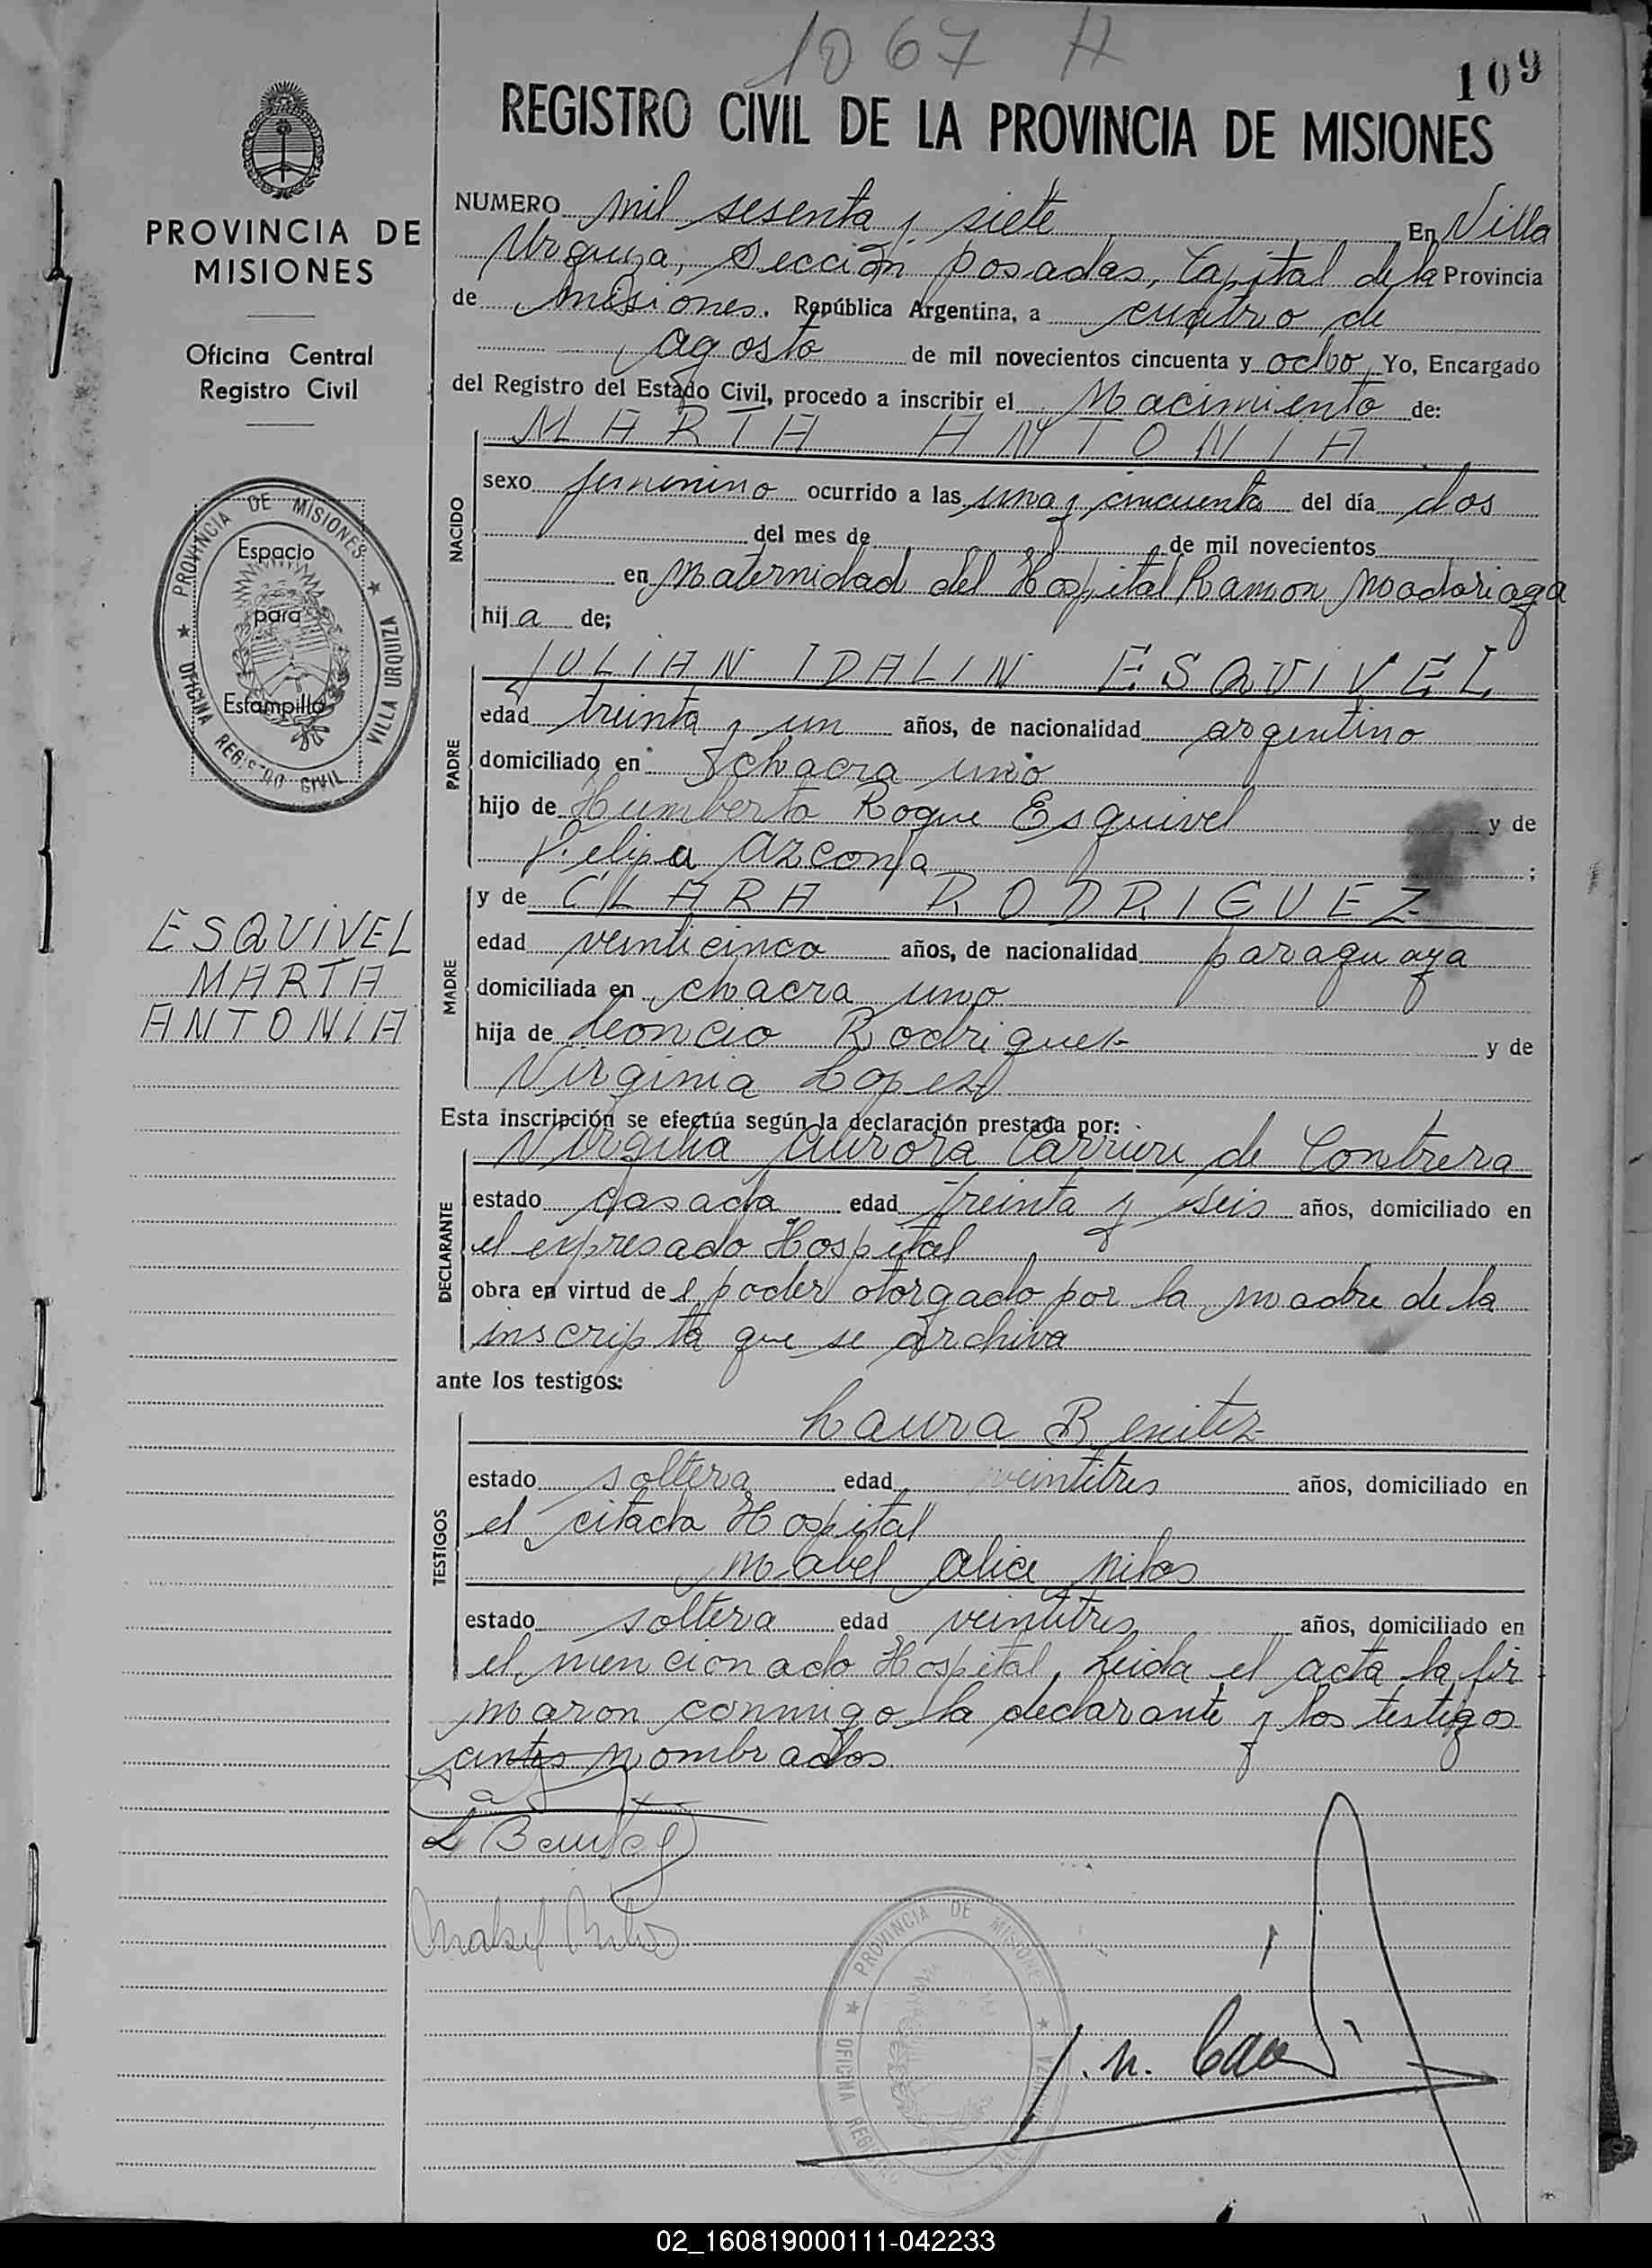 1067 A
109
REGISTRO CIVIL DE LA PROVINCIA DE MISIONES
PROVINCIA DE
MISIONES
Oficina Central
Registro Civil
PROVINCIA DE MISIONES ★ VILLA URQUIZA
OFICINA REGISTRO CIVIL ★
Espacio
para
Estampilla
ESQUIVEL
MARTA
ANTONIA
NUMERO mil sesenta y siete En Villa
Urquiza, Sección Posadas, Capital de la Provincia
de Misiones. República Argentina, a cuatro de
agosto de mil novecientos cincuenta y ocho, Yo, Encargado
del Registro del Estado Civil, procedo a inscribir el Nacimiento de:
MARTA ANTONIA
NACIDO
sexo femenino ocurrido a las una y cincuenta del día dos
del mes de de mil novecientos
en Maternidad del Hospital Ramon Madariaga
hija de;
JULIAN IDALIN ESQUIVEL
PADRE
edad treinta y un años, de nacionalidad argentino
domiciliado en chacra uno
hijo de Humberto Roque Esquivel y de
Felipa Azcona ;
y de CLARA RODRIGUEZ
MADRE
edad veinticinco años, de nacionalidad paraguaya
domiciliada en chacra uno
hija de Leoncio Rodriguez y de
Virginia Lopez
Esta inscripción se efectúa según la declaración prestada por:
Virgilia Aurora Carrieri de Contrera
DECLARANTE
estado casada edad treinta y seis años, domiciliado en
el expresado Hospital
obra en virtud del poder otorgado por la madre de la
inscripta que se archiva
ante los testigos:
Laura Benitez
TESTIGOS
estado soltera edad veintitres años, domiciliado en
el citado Hospital
Mabel Alice
estado soltera edad veintitres años, domiciliado en
el mencionado Hospital, Leida el acta la fir
maron conmigo la declarante y los testigos
antes nombrados.
L Benitez
Mabel
PROVINCIA DE MISIONES ★
★ OFICINA
02_160819000111-042233